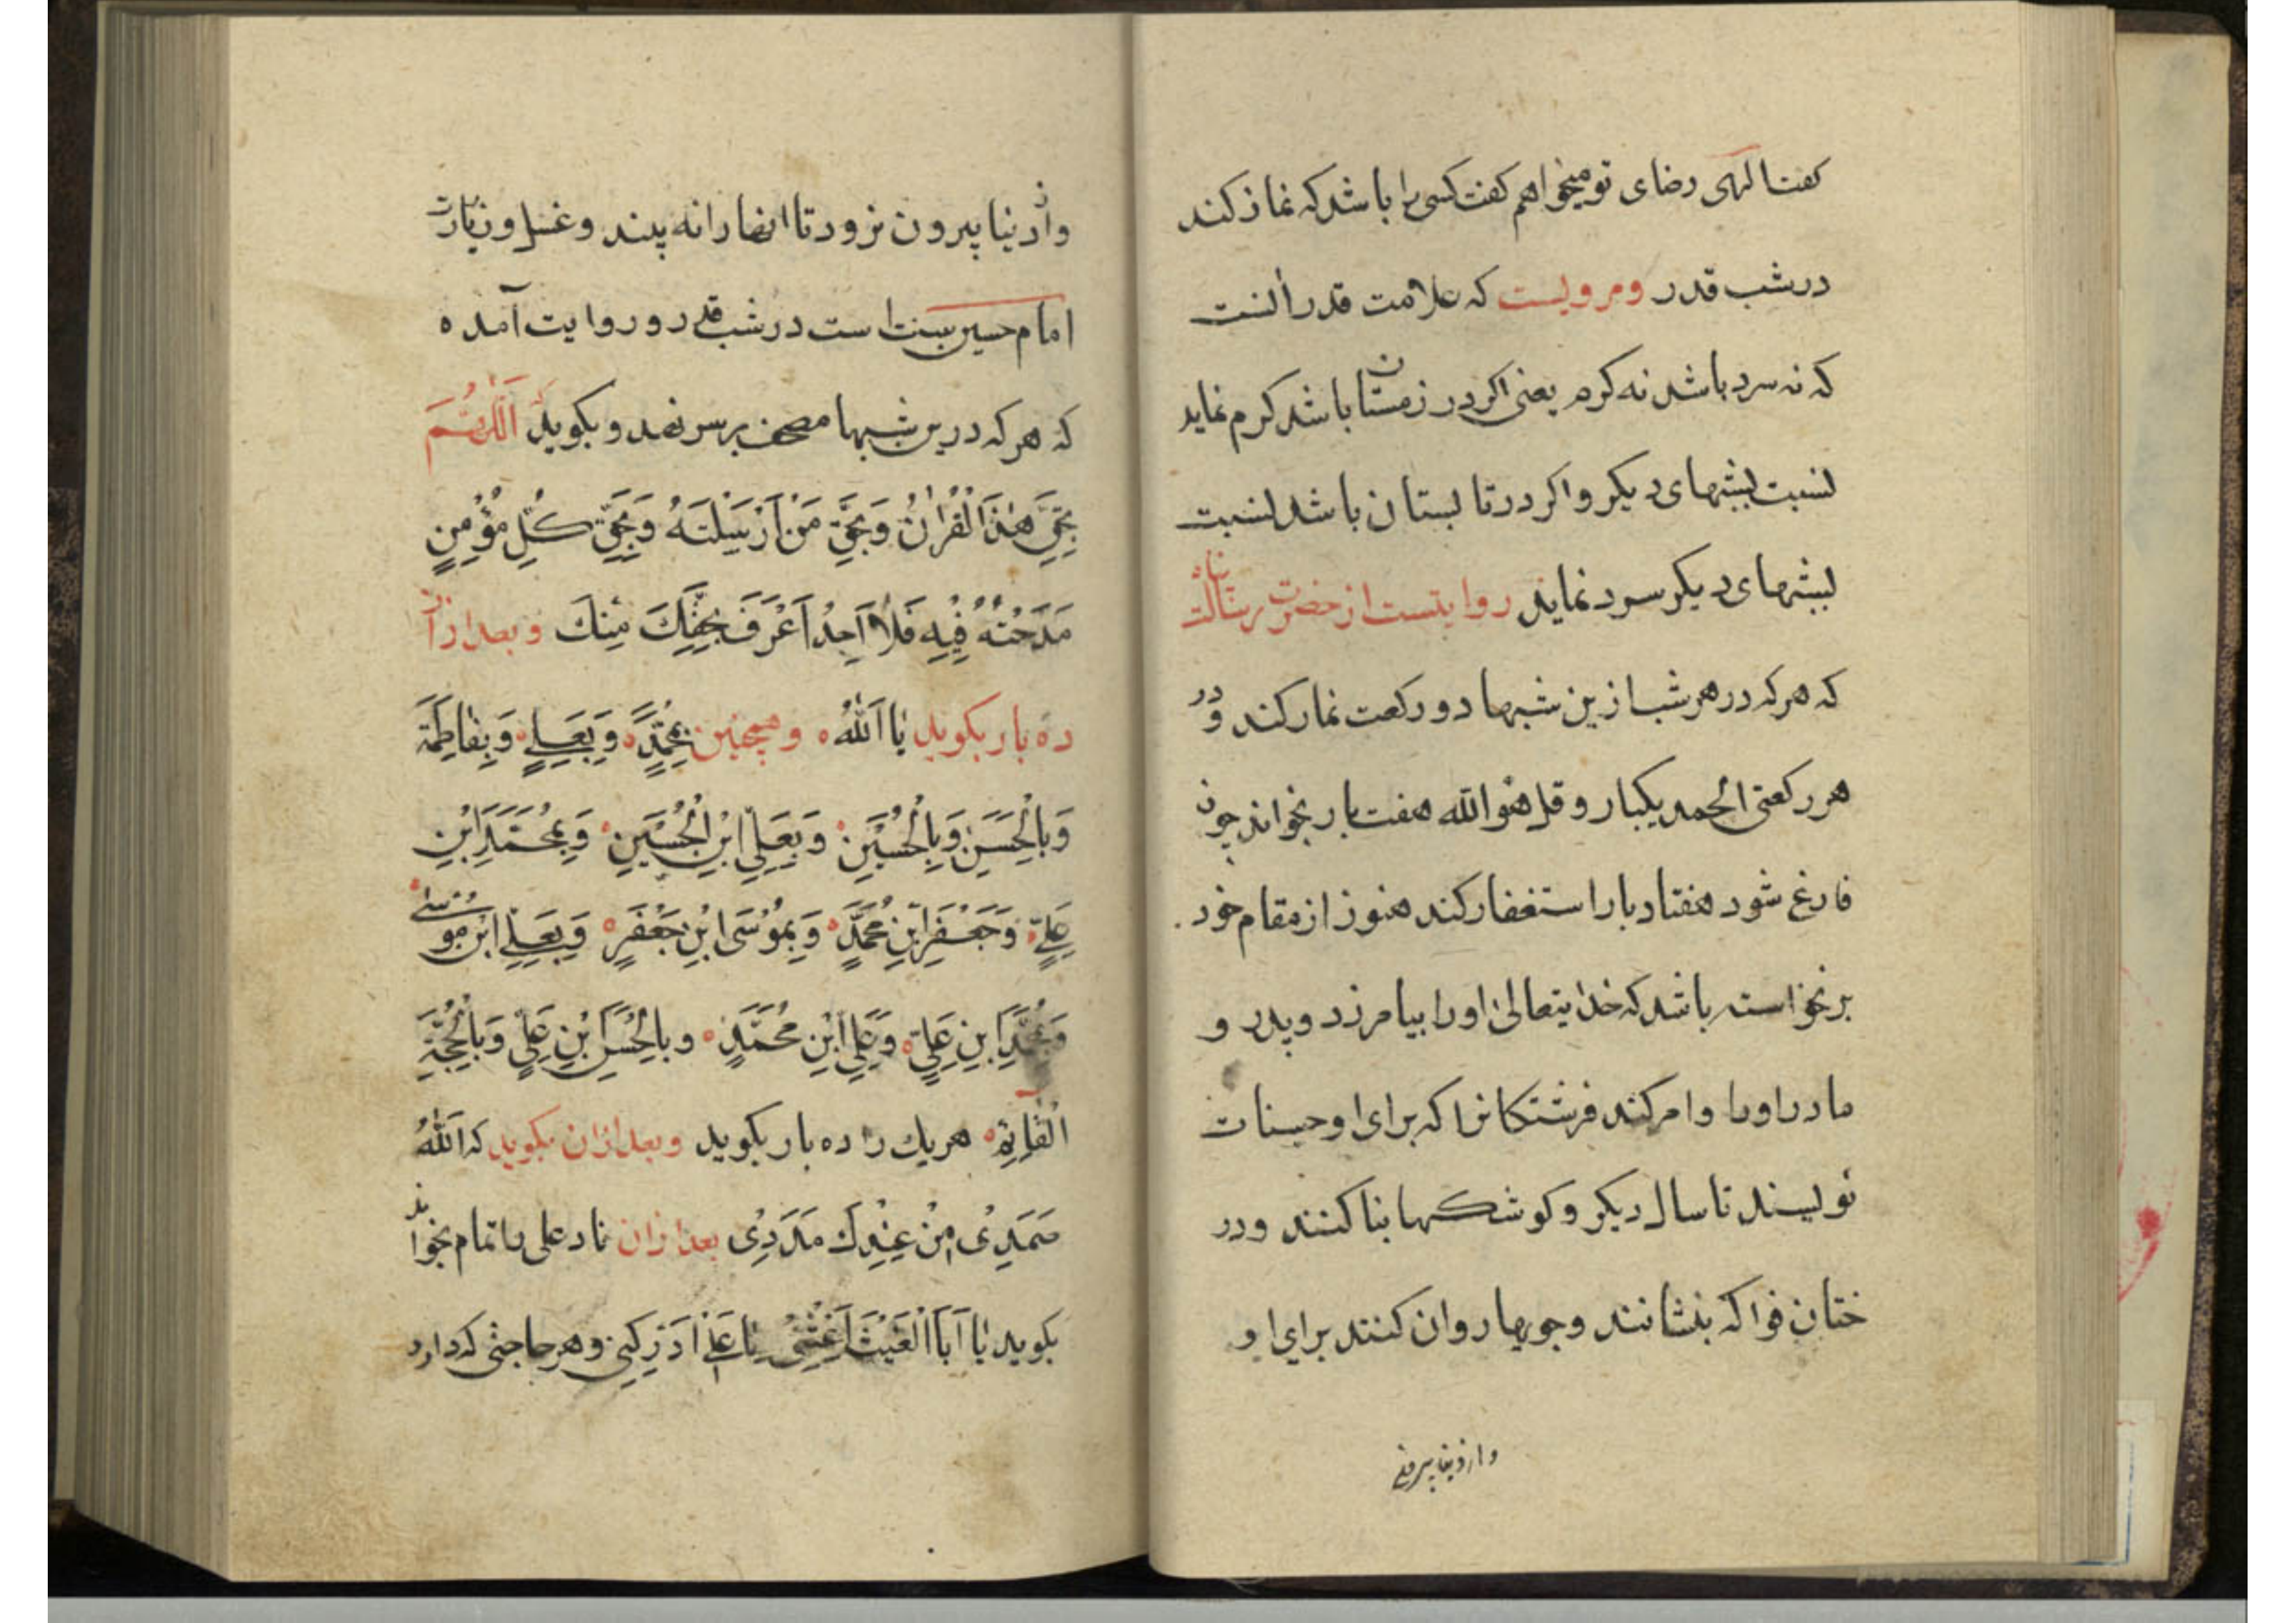 کفت الهی رضای تو میخواهم کفت کسی را باشد که نماز کند
در شب قدر و مرویست که علامت قدر آنست
که نه سرد باشد نه کرم یعنی اکر در زمستان باشد کرم نماید
نسبت بشبهای دیکر و اکر در تابستان باشد نسبت
بشبهای دیکر سرد نماید روایتست از حضرت رسالت پناه
که هر که در هر شب ازین شبها دو رکعت نماز کند و در
هر رکعتی الحمد یکبار و قل هو الله هفت بار بخواند چون
فارغ شود هفتاد بار استغفار کند هنوز از مقام خود
برنخواسته باشد که خدایتعالی او را بیامرزد و پدر و
مادر او را و امر کند فرشتکانرا که برای او حسنات
نویسند تا سال دیکر و کوشکها بنا کنند و در
ختان فواکه بنشانند و جویها روان کنند برای او
و از دنیا بیرون
و از دنیا بیرون نرود تا انها را نه بیند و غسل و زیارت
امام حسین سنت است در شب قدر و روایت آمده
که هر که درین شبها مصحف بر سر نهد و بکوید اَللّٰهُمَّ
بِحَقِّ هٰذَا الْقُرْاٰنِ وَبِحَقِّ مَنْ اَرْسَلْتَهُ وَبِحَقِّ كُلِّ مُؤْمِنٍ
مَدَحْتَهُ فِيْهِ فَلَا اَحَدُ اَعْرَفَ بِحَقِّكَ مِنْكَ و بعد از آن
ده بار بکوید يَا اَللّٰهُ و همچنین بِمُحَمَّدٍ وَبِعَلِيٍّ وَبِفَاطِمَةَ
وَبِالْحَسَنِ وَبِالْحُسَيْنِ وَبِعَلِيِّ ابْنِ الْحُسَيْنِ وَبِمُحَمَّدِ ابْنِ
عَلِيٍّ وَجَعْفَرِ ابْنِ مُحَمَّدٍ وَبِمُوْسَى ابْنِ جَعْفَرٍ وَبِعَلِيِّ ابْنِ مُوْسٰى
وَبِمُحَمَّدِ ابْنِ عَلِيٍّ وَعَلِيِّ ابْنِ مُحَمَّدٍ وبِالْحَسَنِ بْنِ عَلِيٍّ وَبِالْحُجَّةِ
الْقَائِمِ هریک را ده بار بکوید و بعد ازان بکوید که اَللّٰهُ
صَمَدِيْ مِنْ عِنْدِكَ مَدَدِيْ بعد ازان ناد علی را تمام بخواند
بکوید يَا اَبَا الْغَيْثِ اَغِثْنِيْ يَا عَلِي اَدْرِكْنِيْ و هر حاجتی که دارد